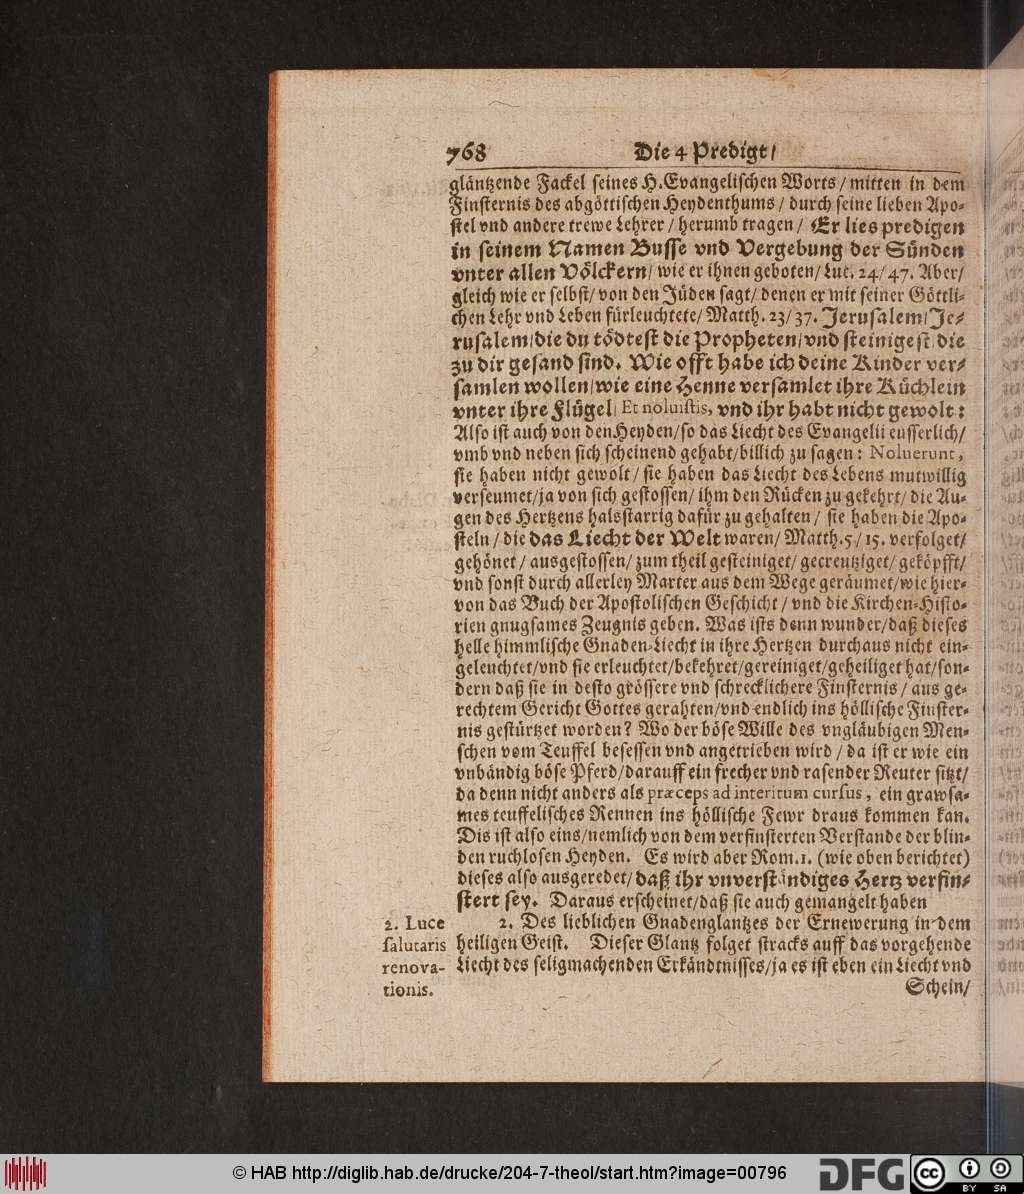 768 Die 4 Predigt/
gläntzende Fackel seines H. Evangelischen Worts/ mitten in dem
Finsternis des abgöttischen Heydenthums/ durch seine lieben Apo-
stel vnd andere trewe Lehrer/ herumb tragen/ Er lies predigen
in seinem Namen Busse vnd Vergebung der Sünden
vnter allen Völckern/ wie er ihnen geboten/ Luc. 24/47. Aber/
gleich wie er selbst/ von den Jüden sagt/ denen er mit seiner Göttli-
chen Lehr vnd Leben fürleuchtete/ Matth. 23/37. Jerusalem/ Je-
rusalem/ die du tödtest die Propheten/ vnd steinigest/ die
zu dir gesand sind. Wie offt habe ich deine Kinder ver-
samlen wollen/ wie eine Henne versamlet ihre Küchlein
vnter ihre Flügel/ Et noluistis, vnd ihr habt nicht gewolt:
Also ist auch von den Heyden/ so das Liecht des Evangelii eusserlich/
vmb vnd neben sich scheinend gehabt/ billich zu sagen: Noluerunt,
sie haben nicht gewolt/ sie haben das Liecht des Lebens mutwillig
verseumet/ ja von sich gestossen/ ihm den Rücken zu gekehrt/ die Au-
gen des Hertzens halsstarrig dafür zu gehalten/ sie haben die Apo-
steln/ die das Liecht der Welt waren/ Matth. 5/15. verfolget/
gehönet/ ausgestossen/ zum theil gesteiniget/ gecreutziget/ geköpfft/
vnd sonst durch allerley Marter aus dem Wege geräumet/ wie hier-
von das Buch der Apostolischen Geschicht/ vnd die Kirchen-Histo-
rien gnugsames Zeugnis geben. Was ists denn wunder/ daß dieses
helle himmlische Gnaden-Liecht in ihre Hertzen durchaus nicht ein-
geleuchtet/ vnd sie erleuchtet/ bekehret/ gereiniget/ geheiliget hat/ son-
dern daß sie in desto grössere vnd schrecklichere Finsternis/ aus ge-
rechtem Gericht Gottes gerahten/ vnd endlich ins höllische Finster-
nis gestürtzet worden? Wo der böse Wille des vngläubigen Men-
schen vom Teuffel besessen vnd angetrieben wird/ da ist er wie ein
vnbändig böse Pferd/ darauff ein frecher vnd rasender Reuter sitzt/
da denn nicht anders als præceps ad interitum cursus, ein grawsa-
mes teuffelisches Rennen ins höllische Fewr draus kommen kan.
Dis ist also eins/ nemlich von dem verfinsterten Verstande der blin-
den ruchlosen Heyden. Es wird aber Rom. 1. (wie oben berichtet)
dieses also ausgeredet/ daß ihr vnverständiges Hertz verfin-
stert sey. Daraus erscheinet/ daß sie auch gemangelt haben
2. Luce
salutaris
renova-
tionis.
2. Des lieblichen Gnadenglantzes der Ernewerung in dem
heiligen Geist. Dieser Glantz folget stracks auff das vorgehende
Liecht des seligmachenden Erkändtnisses/ ja es ist eben ein Liecht vnd
Schein/
© HAB http://diglib.hab.de/drucke/204-7-theol/start.htm?image=00796
DFG
cc BY SA